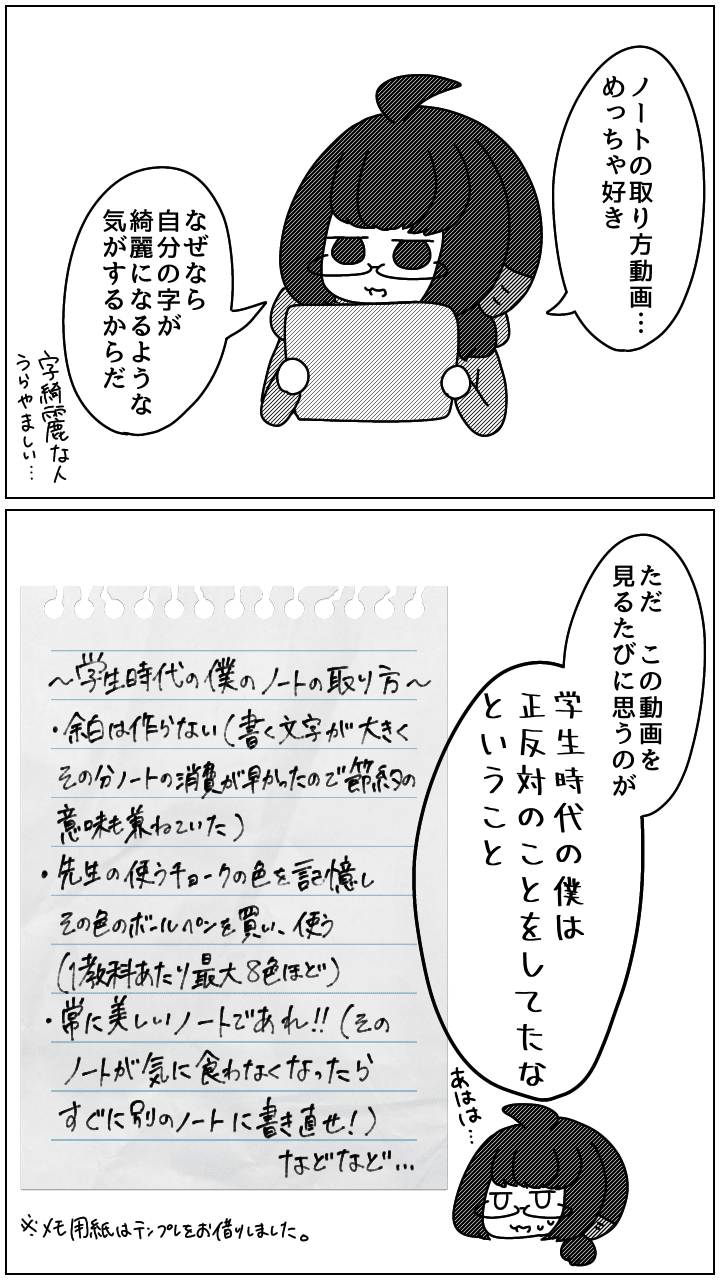 ノートの取り方動画…
めっちゃ好き
なぜなら
自分の字が
綺麗になるような
気がするからだ
字綺麗な人
うらやましい…
ただ この動画を
見るたびに思うのが
学生時代の僕は
正反対のことをしてたな
ということ
～学生時代の僕のノートの取り方～
・余白は作らない(書く文字が大きく
その分ノートの消費が早かったので節約の
意味も兼ねていた)
・先生の使うチョークの色を記憶し
その色のボールペンを買い、使う
(1教科あたり最大8色ほど)
・常に美しいノートであれ!!(その
ノートが気に食わなくなったら
すぐに別のノートに書き直せ!)
などなど…
あはは…
※メモ用紙はテンプレをお借りしました。